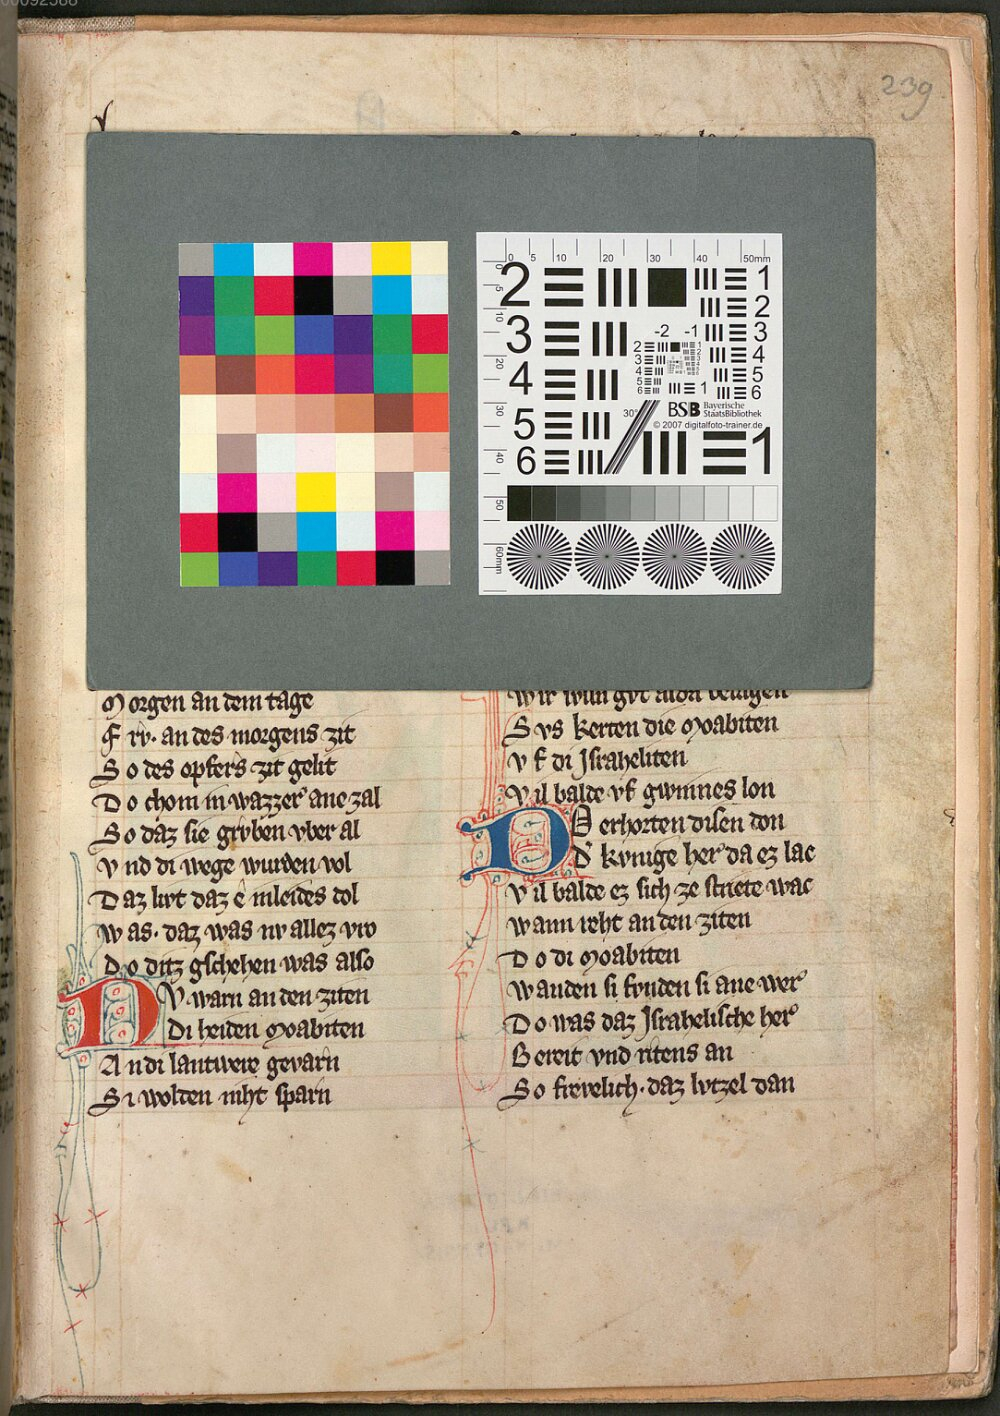 00092588
239
0 5 10 20 30 40 50mm
2 1
2
-2 -1
3 3
4 4
5
6
BSB Bayerische
StaatsBibliothek
30°
© 2007 digitalfoto-trainer.de
5
6 1
5 10 20 30 40 50 60mm
Morgen an dem tage
Frv· an des morgens zit
So des opfers zit gelit
Do chom in wazzer ane zal
So daz sie grvben vber al
Vnd di wege wurden vol
was· daz was nv allez vro
Do ditz gschehen was also
NV warn an den ziten
Di heiden Moabiten
An di lantwere gevarn
Si wolden niht sparn
Svs kerten die Moabiten
Vf di Israheliten
Vil balde vf gwinnes lon
DO erhorten disen don
D' kvnige her' da ez lac
Vil balde ez sich ze striete wac
wann reht an den ziten
Do di Moabiten
Wanden si fvnden si ane wer'
Do was daz Israhelische her'
Bereit vnd ritens an
So frevelich· daz lvtzel dan